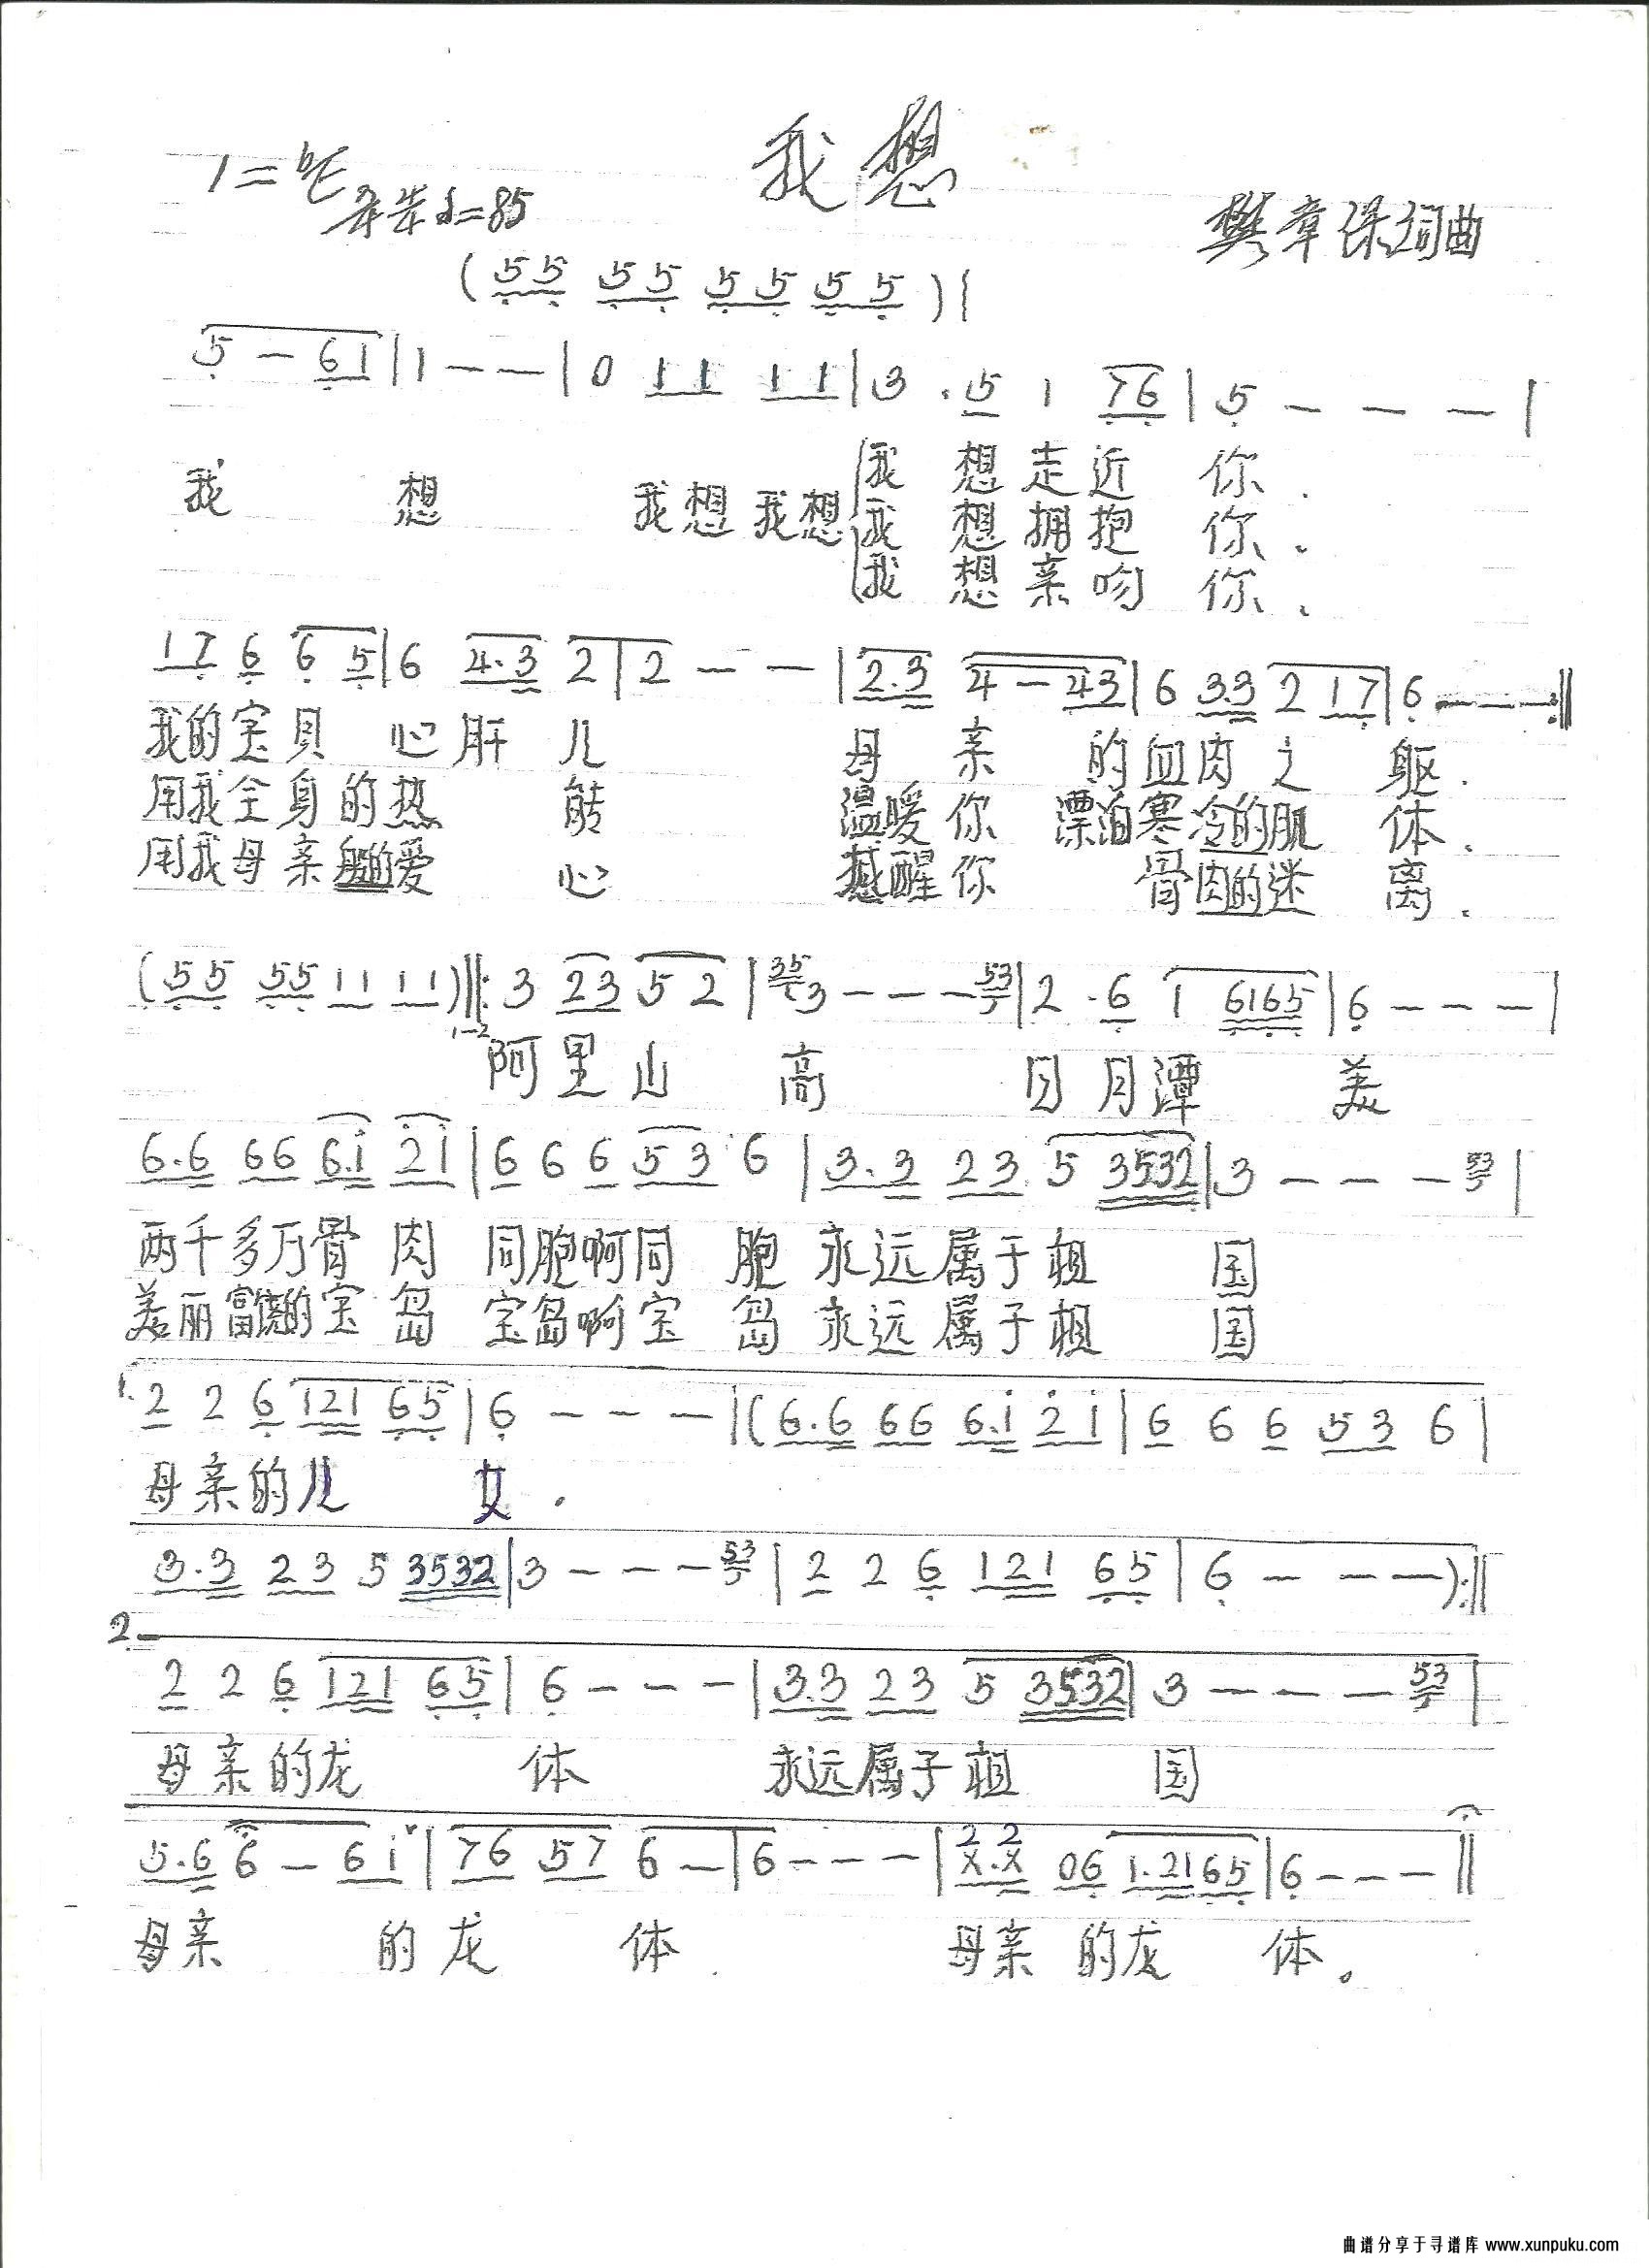 我想
1=♭E
♩=85
樊章保词曲
(55 55 55 55)|
5 — 61 | 1 — — | 0 11 11 | 3 . 5 1 76 | 5 — — — |
我 想 我想我想 我 想走近 你.
我 想拥抱 你.
我 想亲吻 你.
17 6 6 5 | 6 4.3 2 | 2 — — | 2.3 4 — 43 | 6 33 2 17 | 6 — — — :‖
我的宝贝 心肝 儿 母 亲 的血肉之 躯.
用我全身的热 能 温暖你 漂泊寒冷的肌 体.
用我母亲般的爱 心 撼醒你 骨肉的迷 离.
(55 55 11 11)‖: 3 23 5 2 | 35 3 — — — 53 | 2 . 6 1 6165 | 6 — — — |
1-2
阿里山 高 日月潭 美
6.6 66 6.i 2i | 6 6 6 5 3 6 | 3.3 23 5 3532 | 3 — — — 53 |
两千多万骨 肉 同胞啊同 胞 永远属于祖 国
美丽富饶的宝 岛 宝岛啊宝 岛 永远属于祖 国
1. 2 2 6 121 65 | 6 — — — | (6.6 66 6.i 2i | 6 6 6 5 3 6 |
母亲的儿 女.
3.3 23 5 3532 | 3 — — — 53 | 2 2 6 121 65 | 6 — — —) :‖
2.
2 2 6 121 65 | 6 — — — | 3.3 23 5 3532 | 3 — — — 53 |
母亲的龙 体 永远属于祖 国
5.6 6 — 6i | 76 57 6 — | 6 — — — | 2 2 X.X 06 1.2165 | 6 — — — ‖
母亲 的龙 体. 母亲 的龙 体。
曲谱分享于寻谱库 www.xunpuku.com